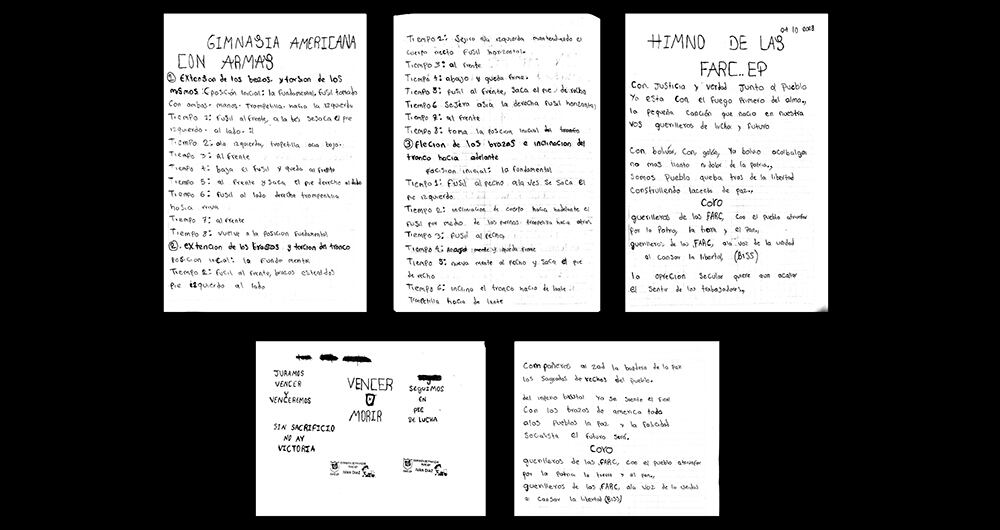 GIMNASIA AMERICANA
CON ARMAS
① Extension de los bazos. y torsion de los
mismos :Cposición Inicial: la fundamental, fusil tomado
Con ambas manos. trompetilla hacia la izquierda
Tiempo 1: fusil al frente, a la bes sesaca el pie
izquierdo al lado.
Tiempo 2: ala izquierda, tropetilla acia bajo.
Tiempo 3: Al frente
Tiempo 4: baja el fusil y queda en firme
Tiempo 5: al frente y saca el pie derecho al lado
Tiempo 6: fusil al lado derecho trompetilla
hacia
Tiempo 7: al frente
Tiempo 8: vuelve a la posicion fundamental
②. extencion de los brazos y torcion del tronco
posicion inicial: la fundamental
Tiempo 1: fucil al frente, brazos estendidos
pie izquierdo al lado
Tiempo 2: Sejiro ala izquierda manteniendo el
cuerpo recto Fusil horizontal.
Tiempo 3: al frente
Tiempo 4: abajo y queda firme.
Tiempo 5: fusil al frente, saca el pie derecho
Tiempo 6 Sejira asia la derecha fusil horizontal
Tiempo 7: al frente
Tiempo 8: toma la poscion inicial
③ flecion de los brazos e inclinacion del
tronco hacia adelante
posicion inicial: la fundamental
Tiempo 1: fusil al pecho, ala ves. Se saca el
pie izquierdo
Tiempo 2: inclinacion de cuerpo hacia adelante el
fusil por medio de las piernas trompetilla hacia atras
Tiempo 3: fusil al pecho
Tiempo 4: mente y queda firme
Tiempo 5: nueva mente al pecho y saca el pie
derecho
Tiempo 6: inclino el tronco hacia de lante
Trompetilla hacia de lante
04 10 2023
HIMNO DE LAS
FARC..EP
Con Justicia y verdad Junto al Pueblo
Ya esta con el fuego Primero del alma,,
la pequeña canción que nacio en nuestra
vos guerrilleros de lucha y futuro
Con bolívar, Con, galán, Ya bolvio acalbalgar
no mas llanto ni dolor de la patria,,
Somos Pueblo queba tras de la libertad
Construllendo de paz.,
CORO
guerrilleros de las FARC, con el pueblo atriunfar
por la Patria, la tierra y el Pan,,
guerrilleros de las ,FARC, ala voz de la unidad
al cansar la libertad, (BISS)
la oprecion secular quiere aun acallar
el sentir de los trabajadores,,
JURAMOS
VENCER
Y
VENCEREMOS
SIN SACRIFICIO
NO AY
VICTORIA
VENCER
O
MORIR
Julian Diaz
SEGUIMOS
EN
PIE
DE LUCHA
Julian Diaz
Compañeros al zad la bandera de la paz
los Sagrados derechos del pueblo.
del inperio brutal Ya se siente el final
Con los brazos de america toda
alos Pueblos la Paz y la felicidad
Socialista el futuro Será.
CORO
guerrilleros de las ,FARC, con el pueblo atriunfar
por la Patria la tierra y el pan,,
guerrilleros de las ,FARC, ala voz de la unidad
a Cansar la libertad (BISS)